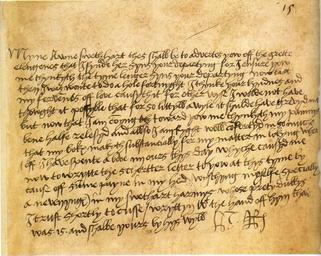 15
Myne awne swethart thes shalbe to advertes yow off the grette
elengenes that I fynde her syns your departyng for I ensure yow
me thynkyth the tyme lenger syns your departyng now last
then I was wont to do a hole fortnyght I thynke your kyndnes and
my fervents off love causyth it for other wyse I wolde not have
thought it possyble that for so littyll a wyle it shulde have grevyd me
but now that I am comyng toward yow me thynkyth my painnys
bene halfe relesyd and also I am ryght well comfortyd in so muche
that my boke makyth substantially for my matter in wrytyng wher
off I have spente a bove iiii ours thys day whyche caused me
now to wrytte the schortter letter to yow at thys tyme by
cause off sume payne in my hed wyschyng my selfe specially
a nevennyng in my swethart harmys whose pretty dukkys
I trust shortly to cusse writtyn with the hand off hym that
was is and shalbe yours by hys wyll H R